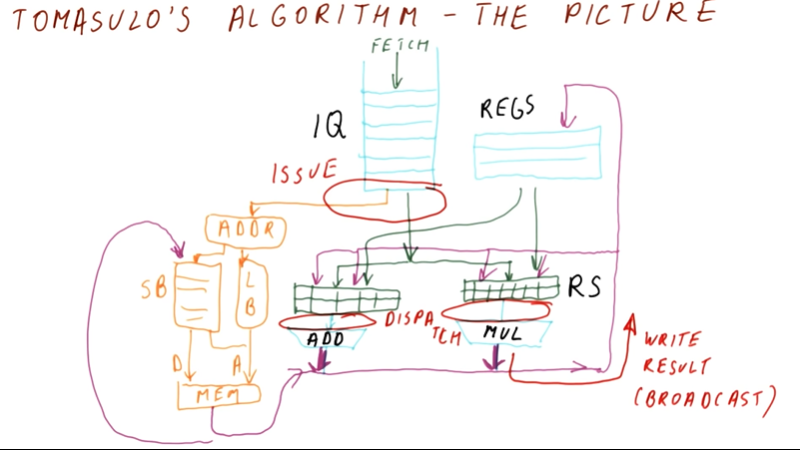 TOMASULO'S ALGORITHM - THE PICTURE
FETCH
IQ
REGS
ISSUE
ADDR
SB
LB
RS
DISPATCH
ADD
MUL
D
A
MEM
WRITE
RESULT
(BROADCAST)